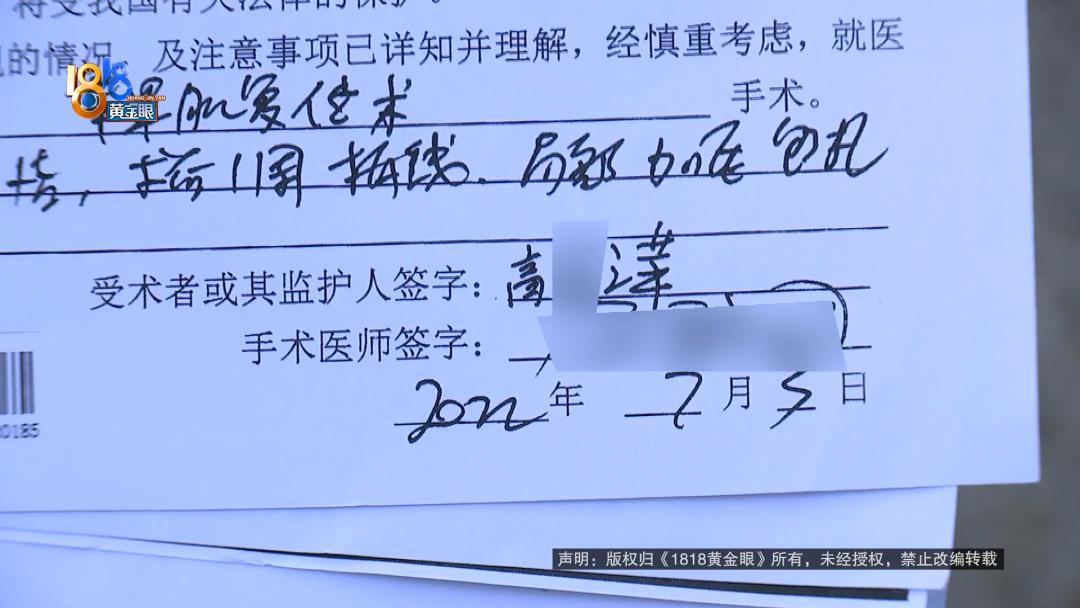 将受我国有关法律的保护。
的情况、及注意事项已详知并理解，经慎重考虑，就医
1818
HUANG JIN YAN
黄金眼
肌复位术 手术。
拆线、局部加压包扎
受术者或其监护人签字：高 洋
手术医师签字：
2022年 7月5日
0185
声明：版权归《1818黄金眼》所有，未经授权，禁止改编转载